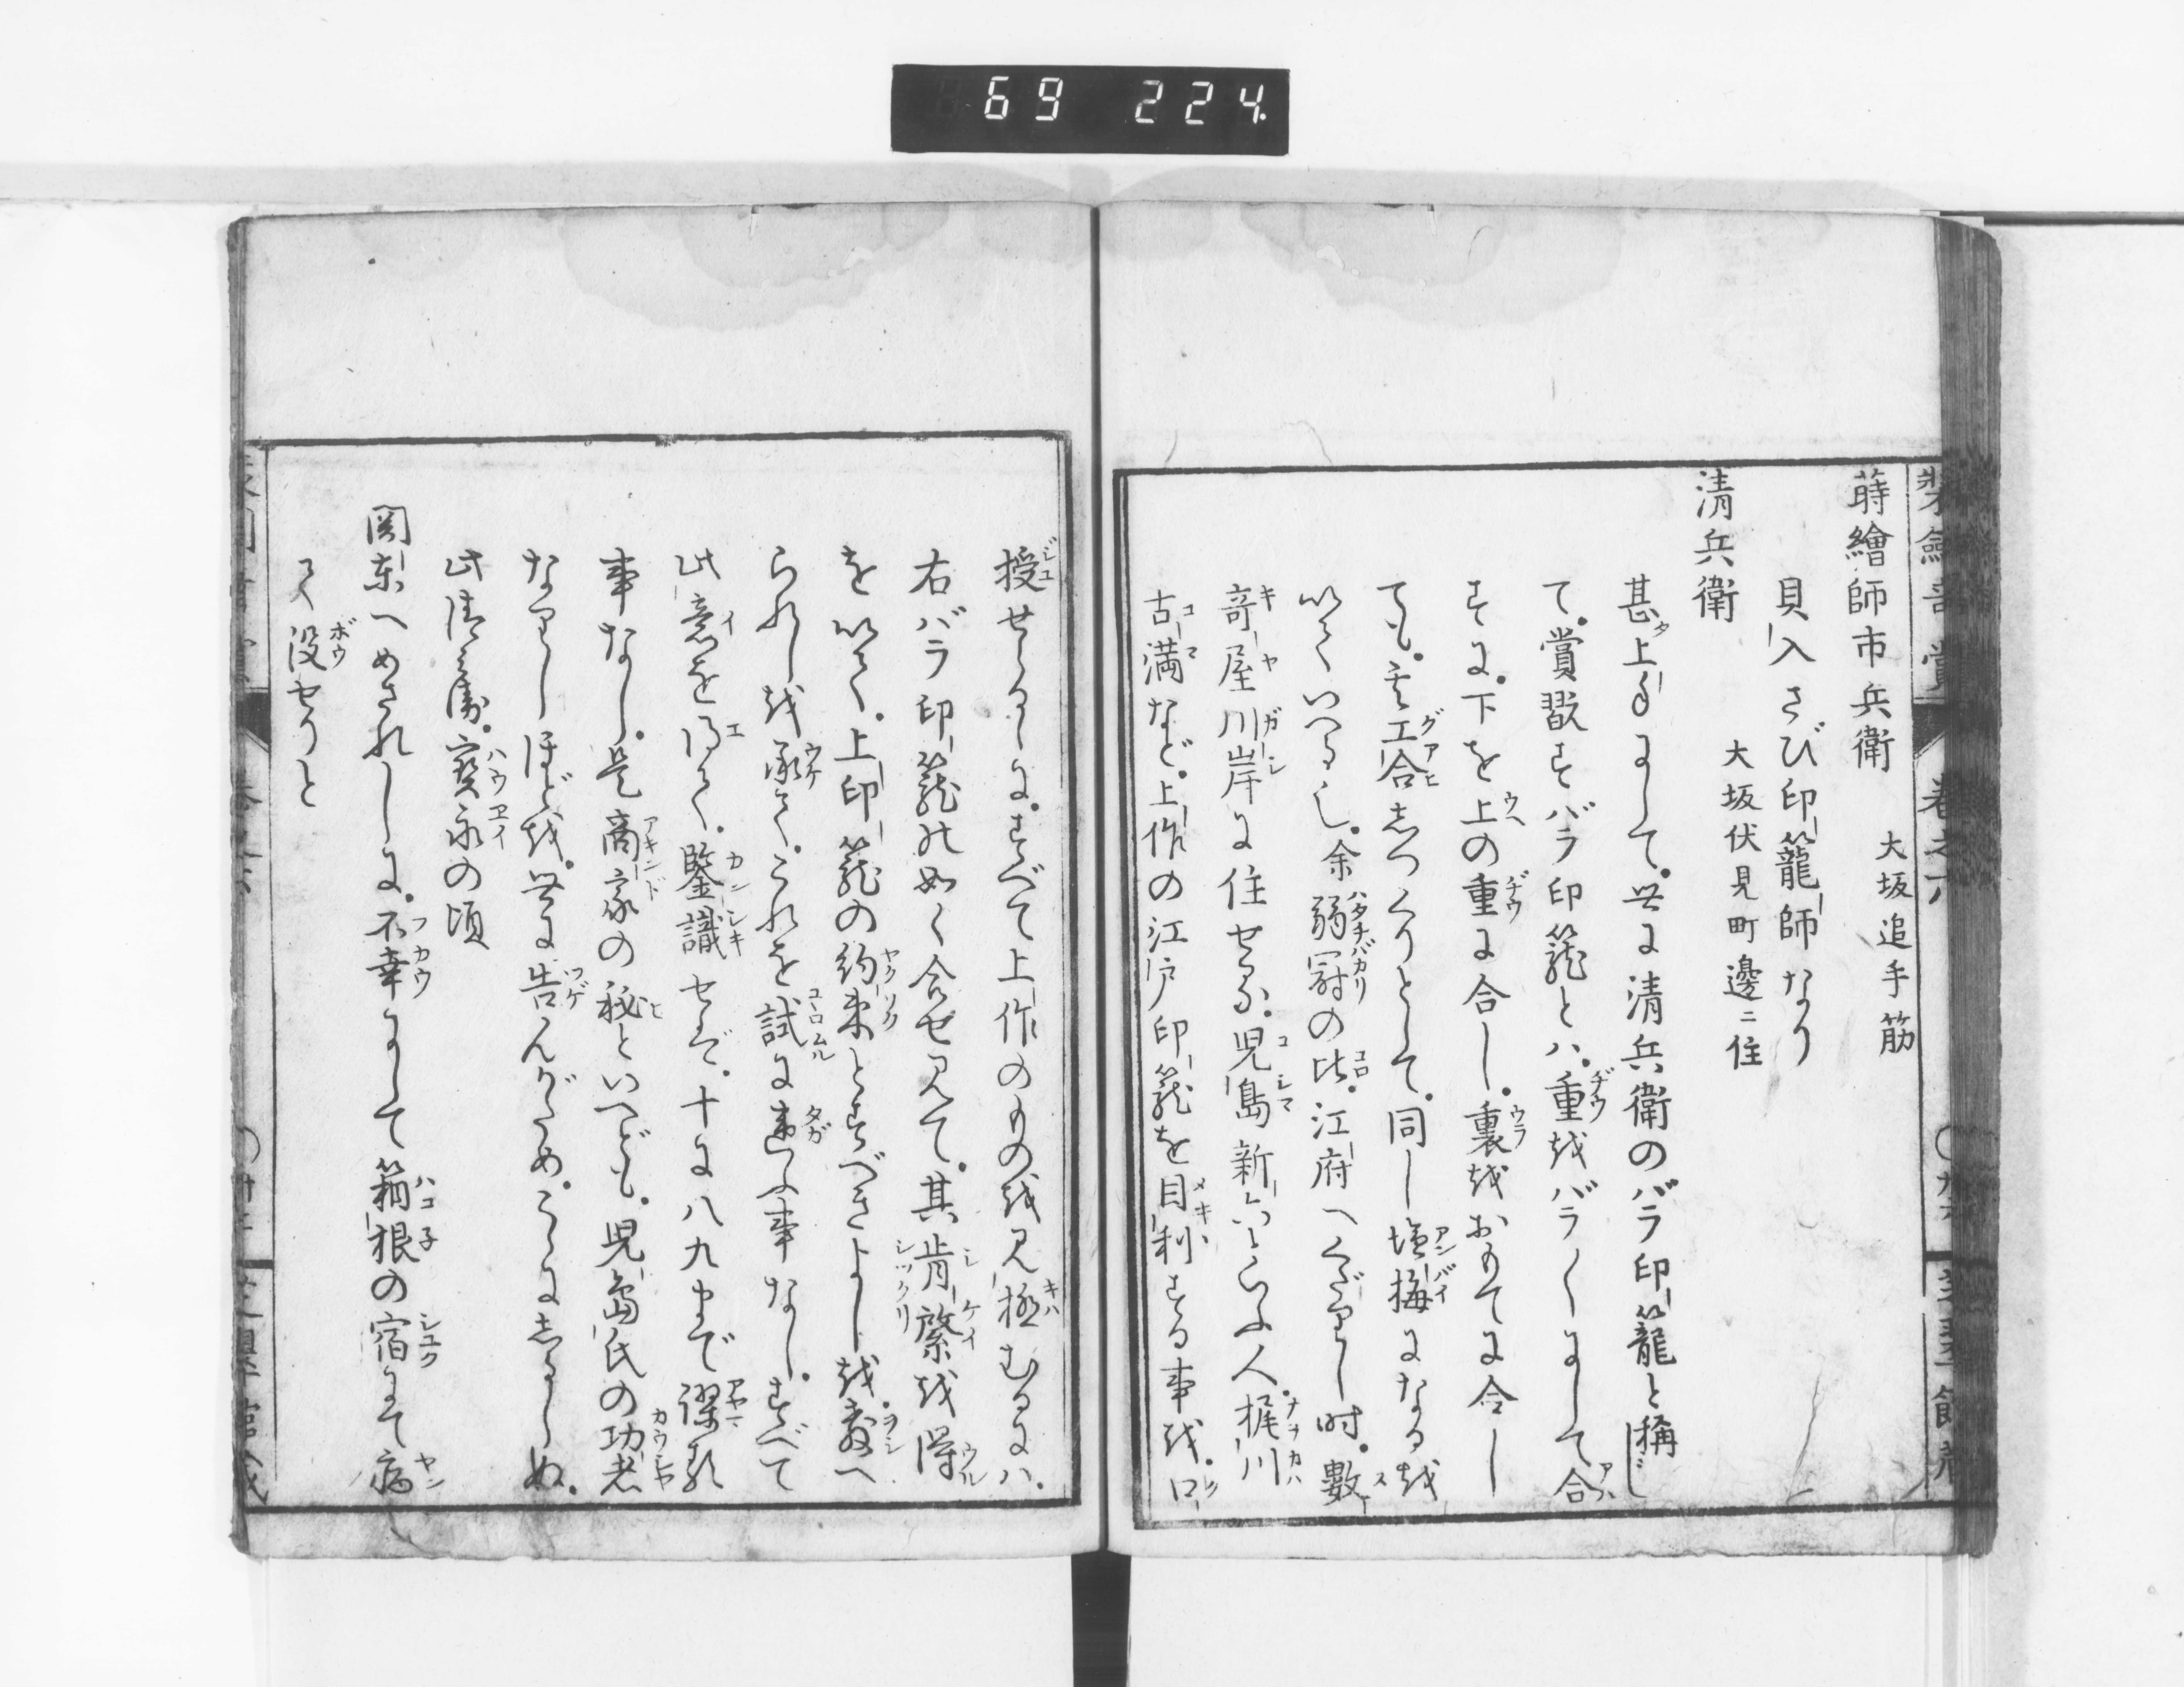 69 224
装劍奇賞
巻之六
蒔繪師市兵衛　大坂追手筋
貝入さび印籠師なり
清兵衛　大坂伏見町邊ニ住
甚上手にして。世に清兵衛のバラ印籠と稱し
て。賞翫すバラ印籠とハ。重をバラ〱にして合
すに。下を上の重に合し。裏をおもてに合し
ても。毛工合しつくりとして。同し塩梅になるを
以ていへる也。余弱冠の比。江府へくだりし時。數
奇屋川岸に住せる。児島新六といふ人。梶川
古満など。上作の江戸印籠を目利する事を。口
授せられしに。すべて上作のものを見極むるにハ。
右バラ印籠の如く合せ見て。其肯綮を得
を以て。上印籠の約束とすべきよしを。教へ
られしを承て。これを試に違ふ事なし。すべて
此意を得て。鑒識せバ。十に八九まで謬る
事なし。是商家の秘といへども。児島氏の功者
なりしほどを。世に告んがため。こゝにしるしぬ。
此清兵衛。寳永の頃
関東へめされしに。不幸にして箱根の宿にて病
て没せりと